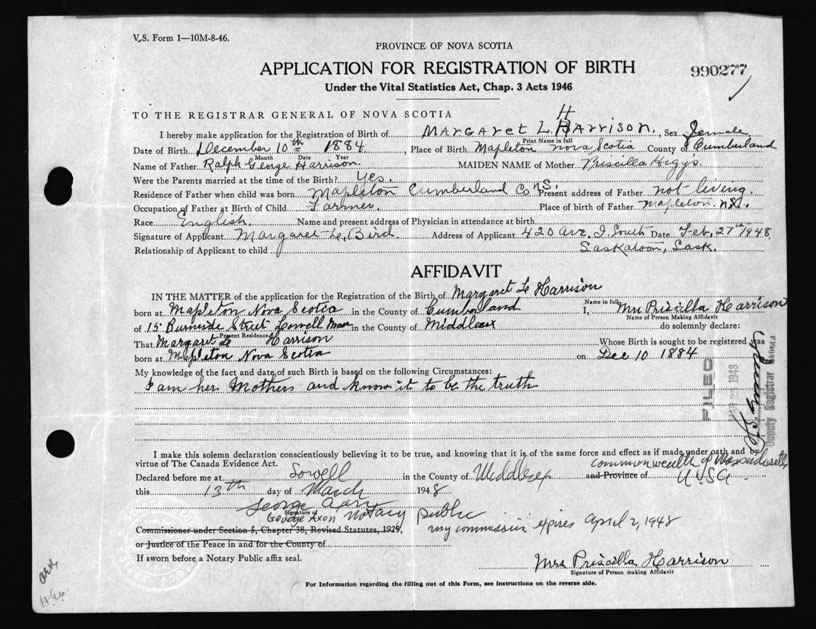 V.S. Form 1—10M-8-46.
PROVINCE OF NOVA SCOTIA
APPLICATION FOR REGISTRATION OF BIRTH
990277
Under the Vital Statistics Act, Chap. 3 Acts 1946
TO THE REGISTRAR GENERAL OF NOVA SCOTIA
I hereby make application for the Registration of Birth of Margaret L. Harrison, Sex Female
Print Name in full
Date of Birth December 10th 1884, Place of Birth Mapleton Nova Scotia County of Cumberland
Month Date Year
Name of Father Ralph George Harrison. MAIDEN NAME of Mother Priscilla Higgs.
Were the Parents married at the time of Birth? Yes.
Residence of Father when child was born Mapleton Cumberland Co N.S. Present address of Father not living.
Occupation of Father at Birth of Child Farmer. Place of birth of Father Mapleton. N.S.
Race English. Name and present address of Physician in attendance at birth
Signature of Applicant Margaret L. Bird. Address of Applicant 420 Ave. I. South Date Feb. 27th 1948
Relationship of Applicant to child Saskatoon, Sask.
AFFIDAVIT
IN THE MATTER of the application for the Registration of the Birth of Margaret L Harrison
born at Mapleton Nova Scotia in the County of Cumberland I, Mrs Priscilla Harrison
Name in full
Name of Person Making Affidavit
of 15 Burnside Street Lowell Mass in the County of Middlesex do solemnly declare:
Present Residence
That Margaret L Harrison Whose Birth is sought to be registered was
born at Mapleton Nova Scotia on Dec 10 1884
My knowledge of the fact and date of such Birth is based on the following Circumstances:
I am her Mothers and know it to be the truth
FILED
1948
Deputy Registrar
I make this solemn declaration conscientiously believing it to be true, and knowing that it is of the same force and effect as if made under oath and by
virtue of The Canada Evidence Act.
Commonwealth of Massachusetts
Declared before me at Lowell in the County of Middlesex and Province of USA
this 13th day of March 1948
Signature of
George Axon Notary Public
Commissioner under Section 5, Chapter 38, Revised Statutes, 1923, my commission expires April 2, 1948
or Justice of the Peace in and for the County of
If sworn before a Notary Public affix seal.
Mrs Priscilla Harrison
Signature of Person making Affidavit
For Information regarding the filling out of this Form, see instructions on the reverse side.